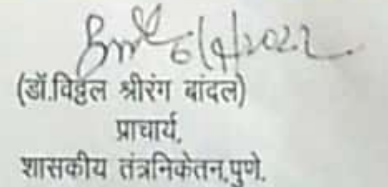 6/9/2022.
(डॉ.विठ्ठल श्रीरंग बांदल)
प्राचार्य,
शासकीय तंत्रनिकेतन,पुणे.